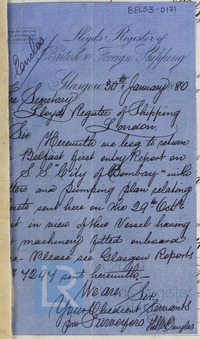 BELS3-0171
Enclos.
Lloyd's Register of
British & Foreign Shipping
Glasgow 30th January 1880
The Secretary
Lloyds Register of Shipping
London.
Sir Herewith we beg to return
Belfast first entry Report on
S.S. "City of Bombay" with
letters and pumping plan relating
sent here on the 29th Octbr
in view of this Vessel having
machinery fitted onboard
Please see Glasgow Reports
7294 sent herewith.
We are, Sir
Your Obedient Servants
pro Surveyors